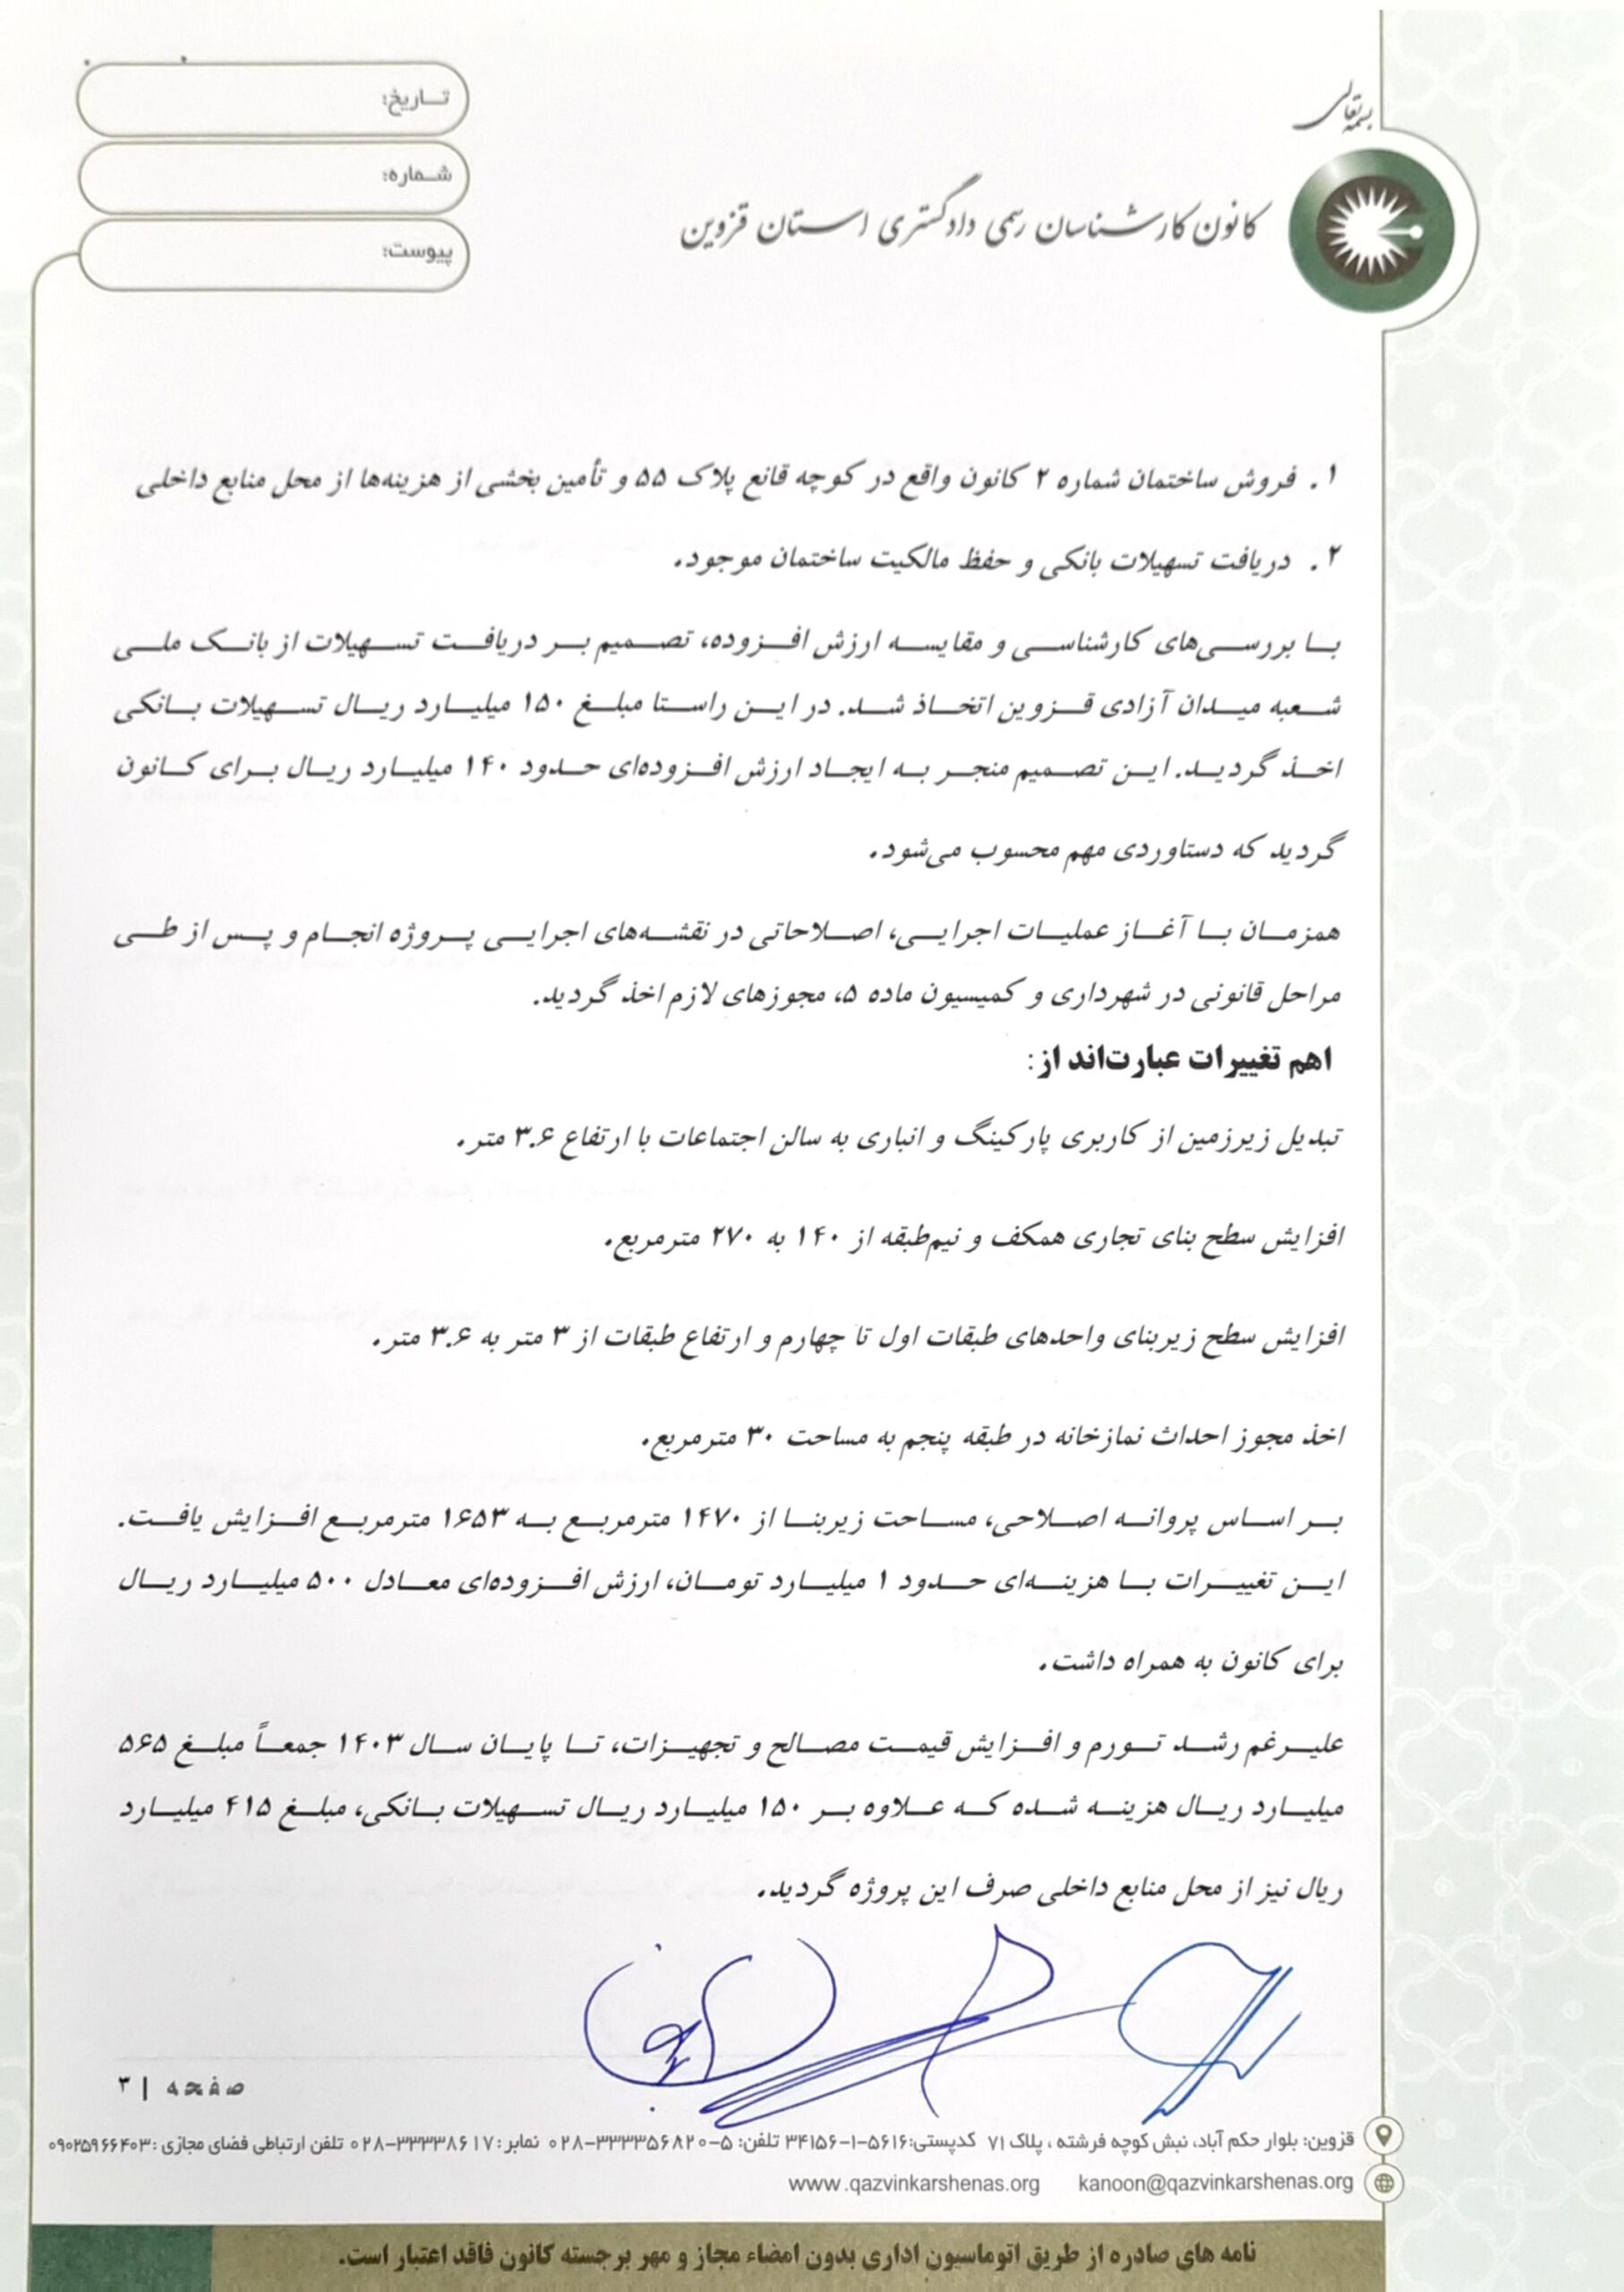 بسمه تعالی
کانون کارشناسان رسمی دادگستری استان قزوین
تاریخ:
شماره:
پیوست:
۱. فروش ساختمان شماره ۲ کانون واقع در کوچه قانع پلاک ۵۵ و تأمین بخشی از هزینه‌ها از محل منابع داخلی
۲. دریافت تسهیلات بانکی و حفظ مالکیت ساختمان موجود.
با بررسی‌های کارشناسی و مقایسه ارزش افزوده، تصمیم بر دریافت تسهیلات از بانک ملی
شعبه میدان آزادی قزوین اتخاذ شد. در این راستا مبلغ ۱۵۰ میلیارد ریال تسهیلات بانکی
اخذ گردید. این تصمیم منجر به ایجاد ارزش افزوده‌ای حدود ۱۴۰ میلیارد ریال برای کانون
گردید که دستاوردی مهم محسوب می‌شود.
همزمان با آغاز عملیات اجرایی، اصلاحاتی در نقشه‌های اجرایی پروژه انجام و پس از طی
مراحل قانونی در شهرداری و کمیسیون ماده ۵، مجوزهای لازم اخذ گردید.
اهم تغییرات عبارت‌اند از:
تبدیل زیرزمین از کاربری پارکینگ و انباری به سالن اجتماعات با ارتفاع ۳.۶ متر.
افزایش سطح بنای تجاری همکف و نیم‌طبقه از ۱۴۰ به ۲۷۰ مترمربع.
افزایش سطح زیربنای واحدهای طبقات اول تا چهارم و ارتفاع طبقات از ۳ متر به ۳.۶ متر.
اخذ مجوز احداث نمازخانه در طبقه پنجم به مساحت ۳۰ مترمربع.
بر اساس پروانه اصلاحی، مساحت زیربنا از ۱۴۷۰ مترمربع به ۱۶۵۳ مترمربع افزایش یافت.
این تغییرات با هزینه‌ای حدود ۱ میلیارد تومان، ارزش افزوده‌ای معادل ۵۰۰ میلیارد ریال
برای کانون به همراه داشت.
علیرغم رشد تورم و افزایش قیمت مصالح و تجهیزات، تا پایان سال ۱۴۰۳ جمعاً مبلغ ۵۶۵
میلیارد ریال هزینه شده که علاوه بر ۱۵۰ میلیارد ریال تسهیلات بانکی، مبلغ ۴۱۵ میلیارد
ریال نیز از محل منابع داخلی صرف این پروژه گردید.
صفحه | ۳
قزوین: بلوار حکم آباد، نبش کوچه فرشته ، پلاک ۷۱ کدپستی: ۵۶۱۶-۱-۳۴۱۵۶ تلفن: ۵-۳۳۳۵۶۸۲۰-۰۲۸ نمابر: ۳۳۳۳۸۶۱۷-۰۲۸ تلفن ارتباطی فضای مجازی: ۰۹۰۲۵۹۶۶۴۰۳
www.qazvinkarshenas.org kanoon@qazvinkarshenas.org
نامه های صادره از طریق اتوماسیون اداری بدون امضاء مجاز و مهر برجسته کانون فاقد اعتبار است.